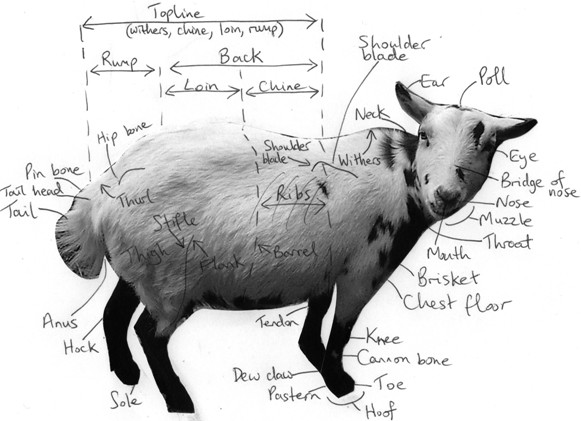 Topline
(withers, chine, loin, rump)
Rump
Back
Loin
Chine
Shoulder
blade
Ear
Poll
Neck
Hip bone
Shoulder
blade
Withers
Eye
Bridge of
nose
Pin bone
Tail head
Tail
Thurl
Ribs
Nose
Muzzle
Stifle
Throat
Mouth
Thigh
Flank
Barrel
Brisket
Chest floor
Anus
Hock
Tendon
Knee
Cannon bone
Dew claw
Pastern
Toe
Sole
Hoof